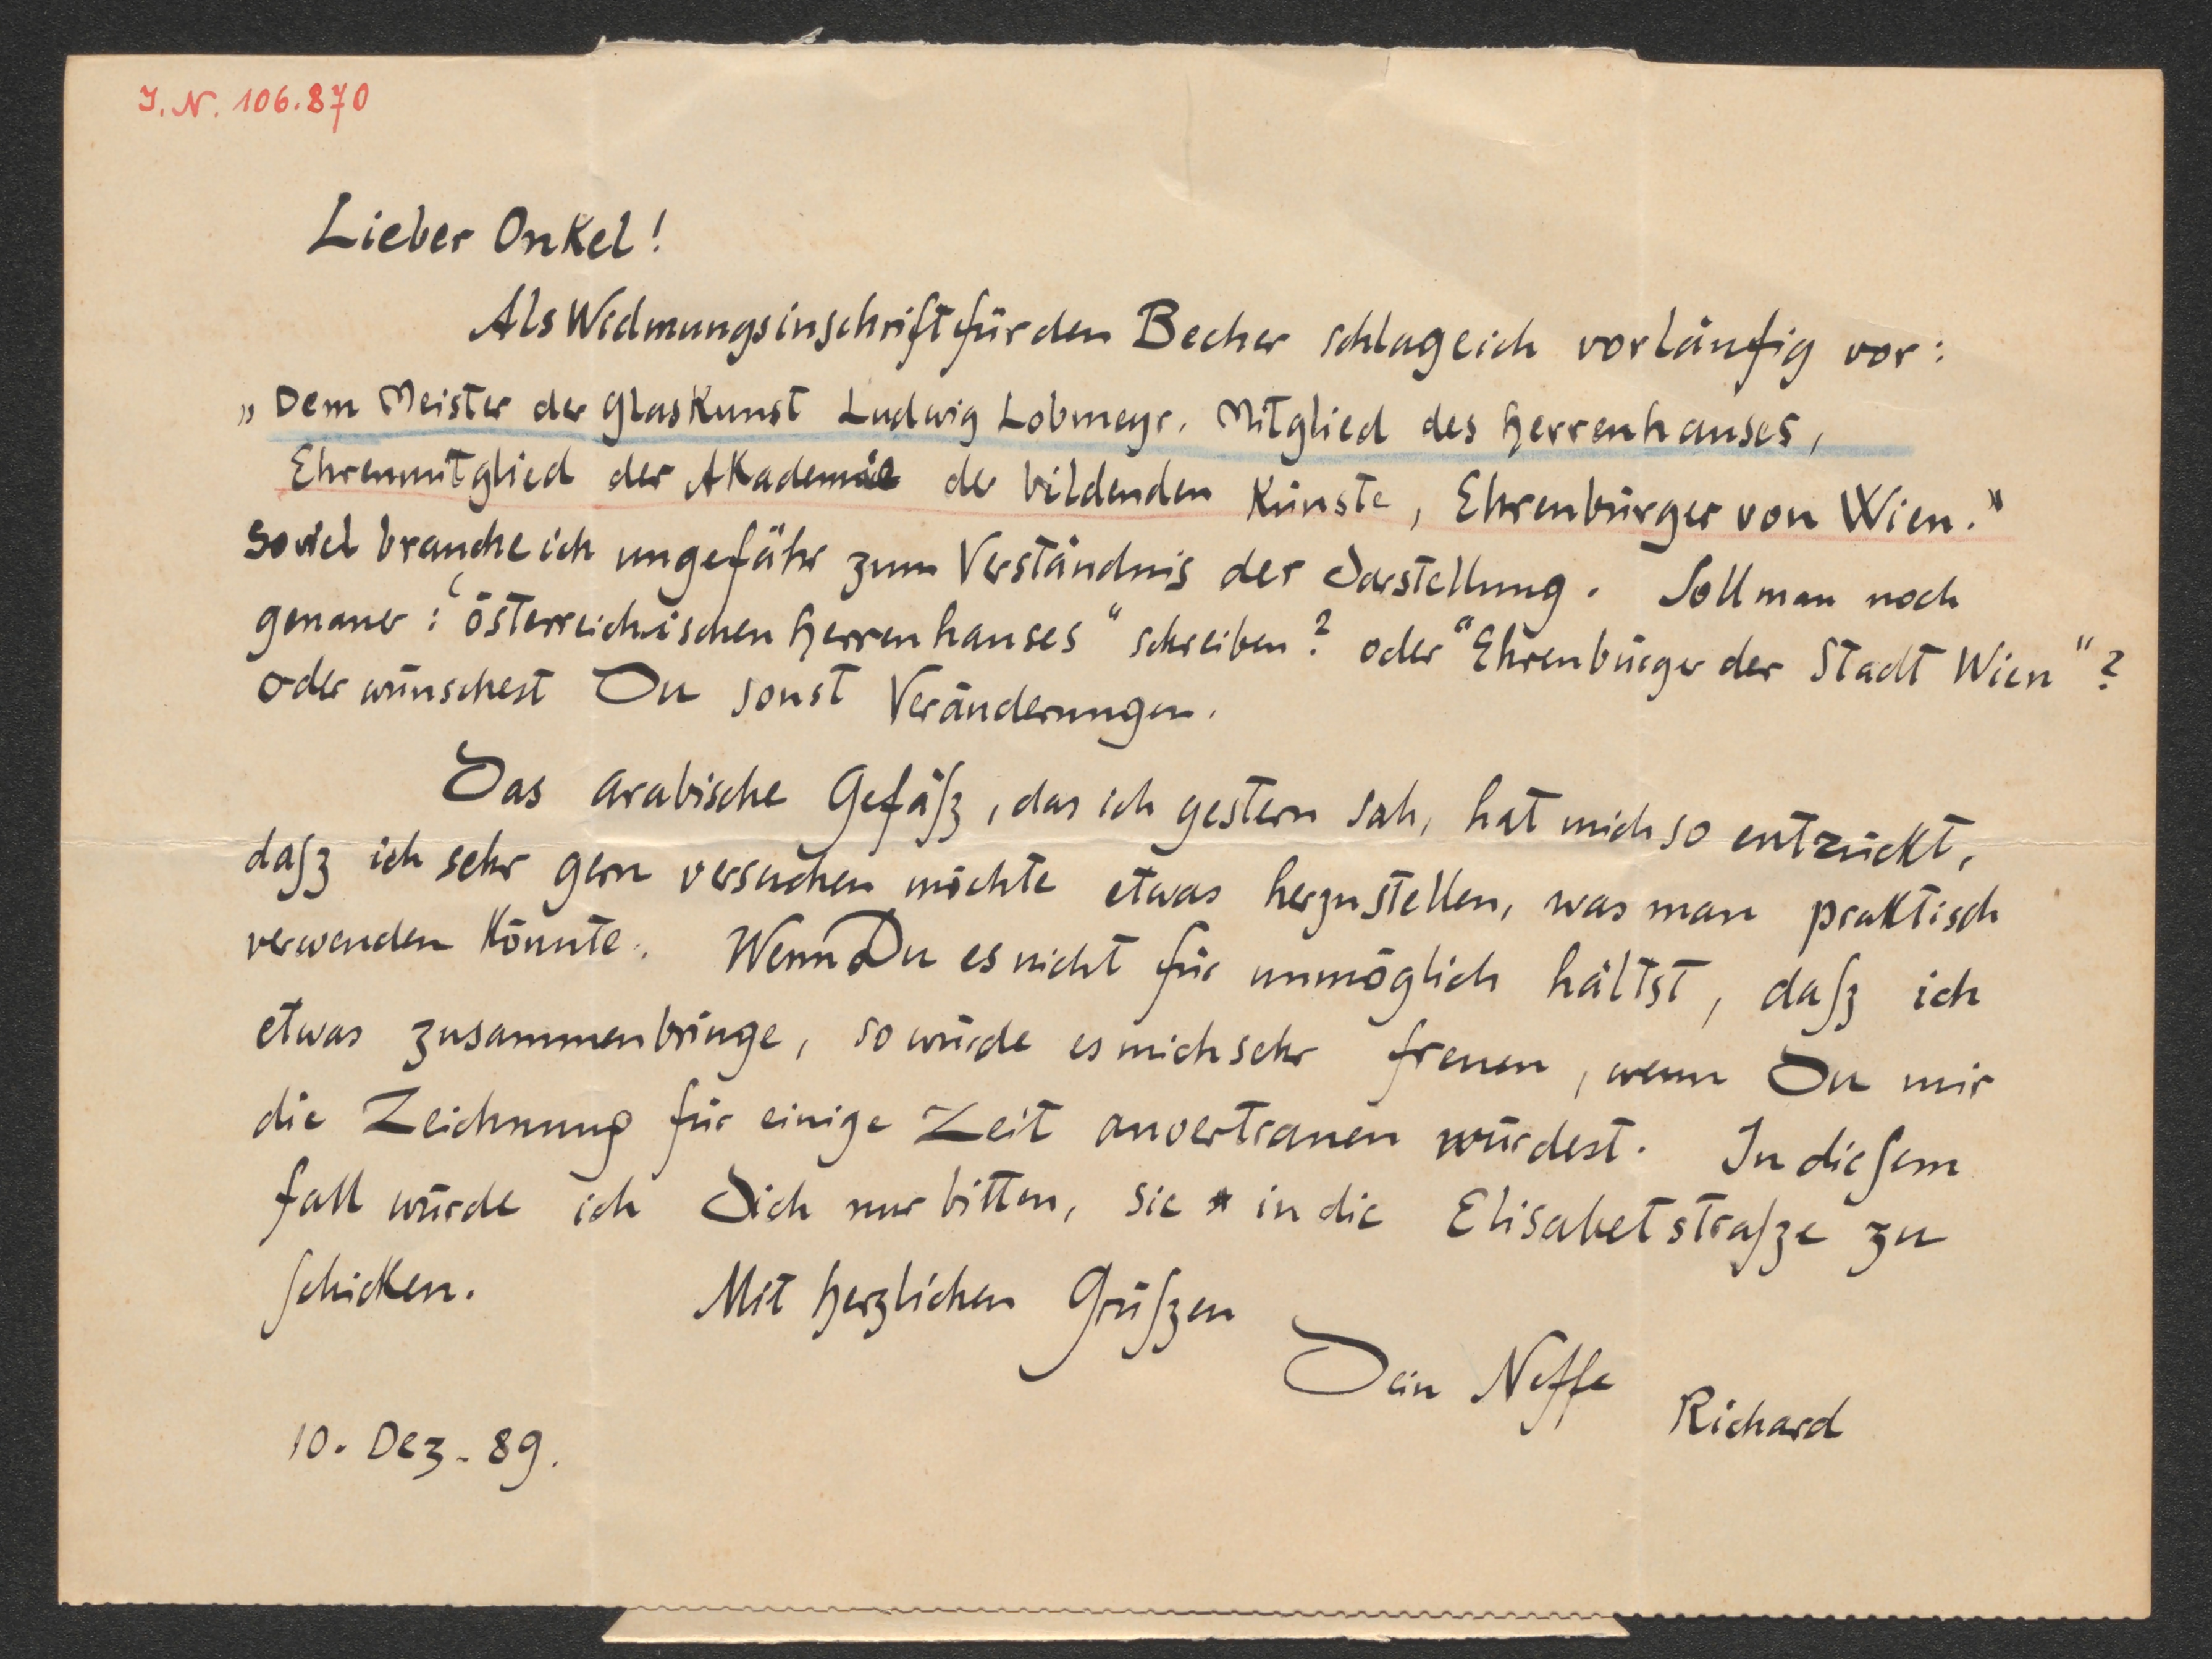 I. N. 106.870
Lieber Onkel!
Als Widmungsinschrift für den Becher schlage ich vorläufig vor:
„Dem Meister der Glaskunst Ludwig Lobmeyr, Mitglied des Herrenhauses,
Ehrenmitglied der Akademie der bildenden Künste, Ehrenbürger von Wien."
Soviel brauche ich ungefähr zum Verständnis der Darstellung. Soll man noch
genauer: "österreichischen Herrenhauses" schreiben? oder "Ehrenbürger der Stadt Wien"?
oder wünschest Du sonst Veränderungen.
Das arabische Gefäß, das ich gestern sah, hat mich so entzückt,
daß ich sehr gern versuchen möchte etwas herzustellen, was man praktisch
verwenden könnte. Wenn Du es nicht für unmöglich hältst, daß ich
etwas zusammenbringe, so würde es mich sehr freuen, wenn Du mir
die Zeichnung für einige Zeit anvertrauen würdest. In diesem
Fall würde ich Dich nur bitten, sie in die Elisabetstraße zu
schicken. Mit herzlichen Grüßen
Dein Neffe
Richard
10. Dez. 89.